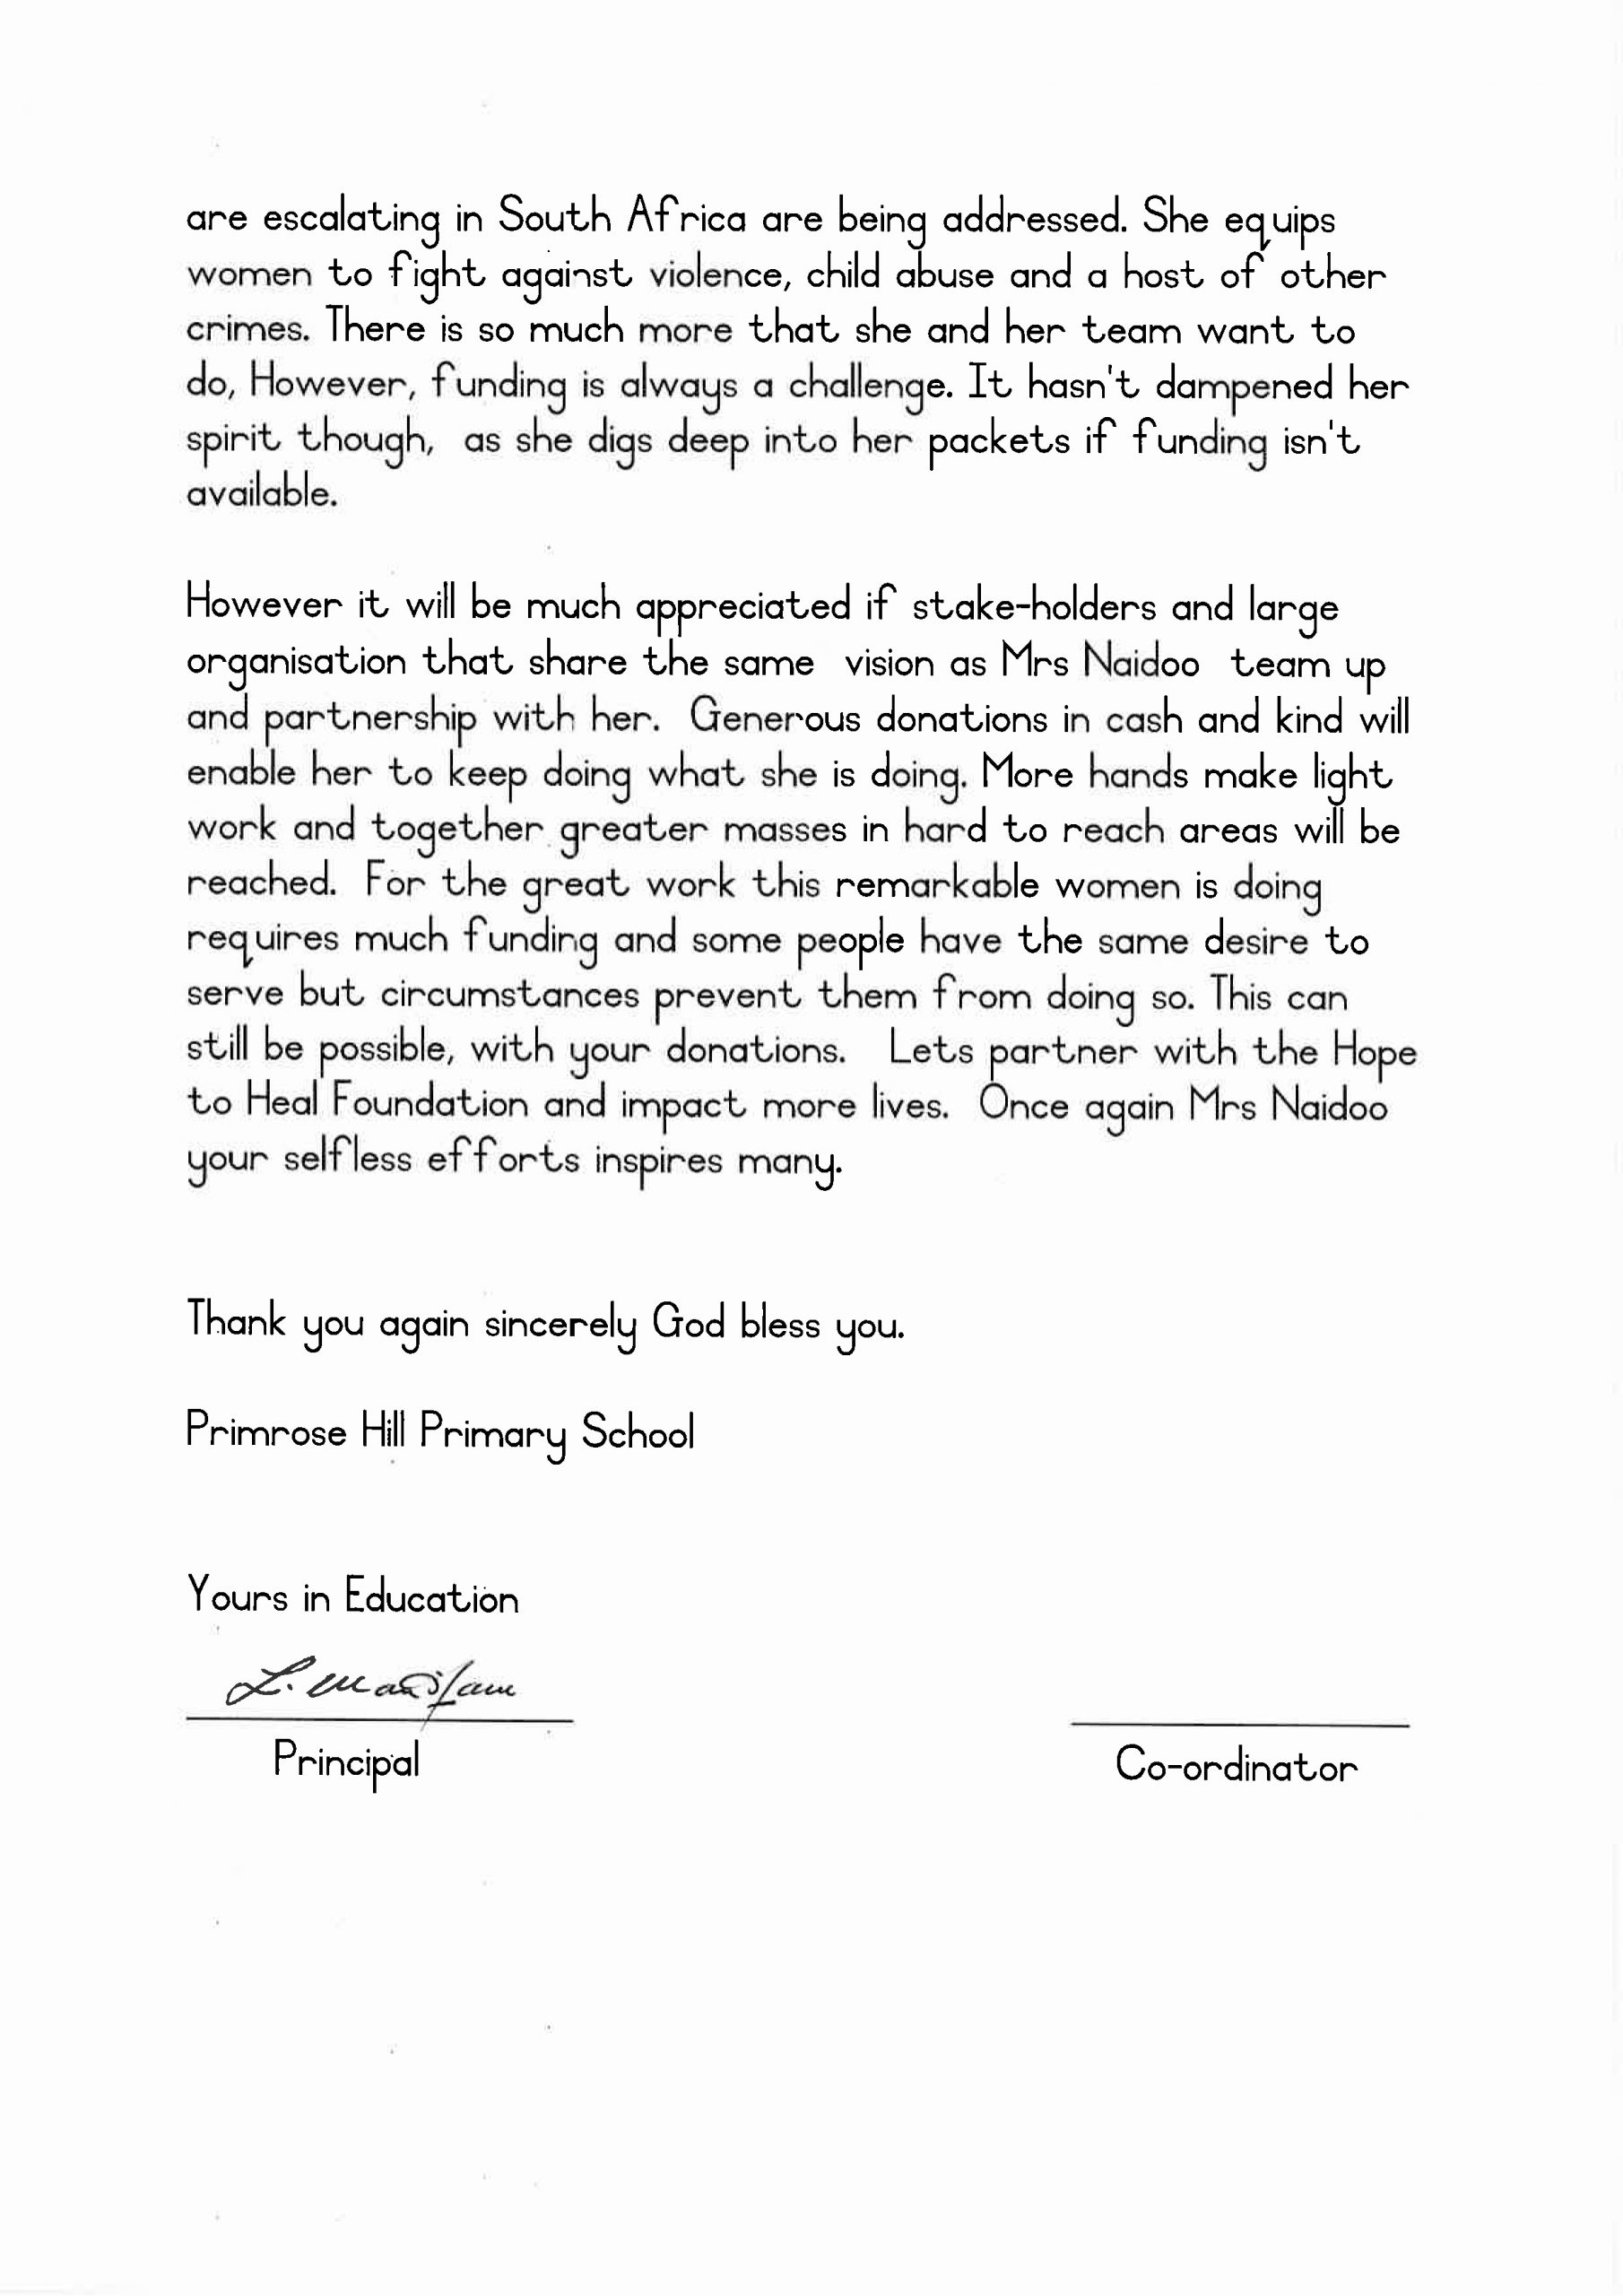 are escalating in South Africa are being addressed. She equips
women to fight against violence, child abuse and a host of other
crimes. There is so much more that she and her team want to
do, However, funding is always a challenge. It hasn't dampened her
spirit though, as she digs deep into her packets if funding isn't
available.
However it will be much appreciated if stake-holders and large
organisation that share the same vision as Mrs Naidoo team up
and partnership with her. Generous donations in cash and kind will
enable her to keep doing what she is doing. More hands make light
work and together greater masses in hard to reach areas will be
reached. For the great work this remarkable women is doing
requires much funding and some people have the same desire to
serve but circumstances prevent them from doing so. This can
still be possible, with your donations. Lets partner with the Hope
to Heal Foundation and impact more lives. Once again Mrs Naidoo
your selfless efforts inspires many.
Thank you again sincerely God bless you.
Primrose Hill Primary School
Yours in Education
L.
Principal
Co-ordinator